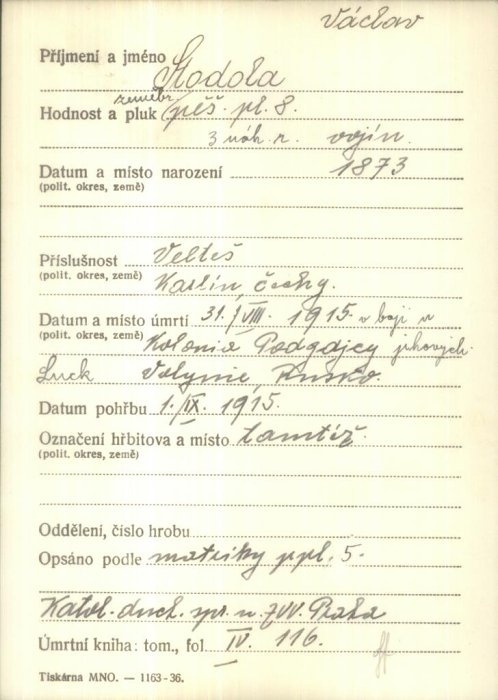 Václav
Příjmení a jméno Stodola
Hodnost a pluk zeměbr. pěš. pl. 8.
3 náh. r. vojín.
Datum a místo narození 1873
(polit. okres, země)
Příslušnost Velteš
(polit. okres, země) Karlín, Čechy.
Datum a místo úmrtí 31./VIII. 1915 v boji u
(polit. okres, země) Kolonie Podgajcy jihových.
Luck Volynie, Rusko.
Datum pohřbu 1./IX. 1915.
Označení hřbitova a místo tamtéž.
(polit. okres, země)
Oddělení, číslo hrobu
Opsáno podle matriky ppl. 5.
Katol. duch. spr. u ZVV. Praha
Úmrtní kniha: tom., fol. IV. 116.
Tiskárna MNO. — 1163-36.